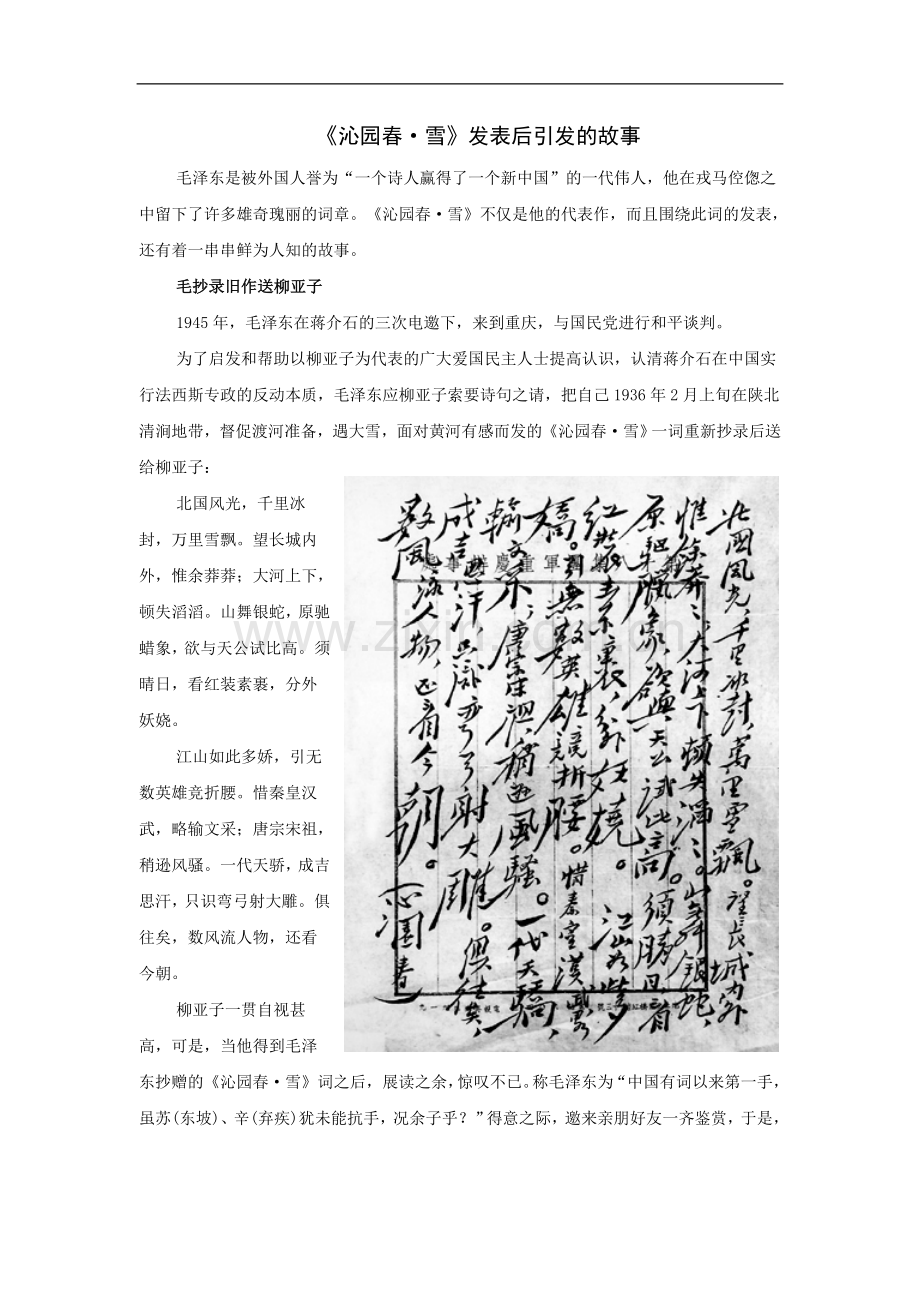 《沁园春·雪》发表后引发的故事
毛泽东是被外国人誉为“一个诗人赢得了一个新中国”的一代伟人，他在戎马倥偬之
中留下了许多雄奇瑰丽的词章。《沁园春·雪》不仅是他的代表作，而且围绕此词的发表，
还有着一串串鲜为人知的故事。
毛抄录旧作送柳亚子
1945 年，毛泽东在蒋介石的三次电邀下，来到重庆，与国民党进行和平谈判。
为了启发和帮助以柳亚子为代表的广大爱国民主人士提高认识，认清蒋介石在中国实
行法西斯专政的反动本质，毛泽东应柳亚子索要诗句之请，把自己 1936 年 2 月上旬在陕北
清涧地带，督促渡河准备，遇大雪，面对黄河有感而发的《沁园春·雪》一词重新抄录后送
给柳亚子：
北国风光，千里冰
封，万里雪飘。望长城内
外，惟余莽莽；大河上下，
顿失滔滔。山舞银蛇，原驰
蜡象，欲与天公试比高。须
晴日，看红装素裹，分外
妖娆。
江山如此多娇，引无
数英雄竞折腰。惜秦皇汉
武，略输文采；唐宗宋祖，
稍逊风骚。一代天骄，成吉
思汗，只识弯弓射大雕。俱
往矣，数风流人物，还看
今朝。
北國風光，千里冰封，萬里雪飄。望長城內外
惟餘莽〻。大河上下，頓失滔〻。山舞銀蛇，
原馳臘象，欲與天公試比高。須晴日，看
紅裝素裹，分外妖嬈。江山如此多
嬌，引無數英雄競折腰。惜秦皇漢武，略
輸文采，唐宗宋祖，稍遜風騷。一代天驕，
成吉思汗，只識彎弓射大雕。俱往矣，
數風流人物，还看今朝。沁園春
柳亚子一贯自视甚
高，可是，当他得到毛泽
东抄赠的《沁园春·雪》词之后，展读之余，惊叹不已。称毛泽东为“中国有词以来第一手，
虽苏(东坡)、辛(弃疾)犹未能抗手，况余子乎？”得意之际，邀来亲朋好友一齐鉴赏，于是，
www.zixin.com.cn